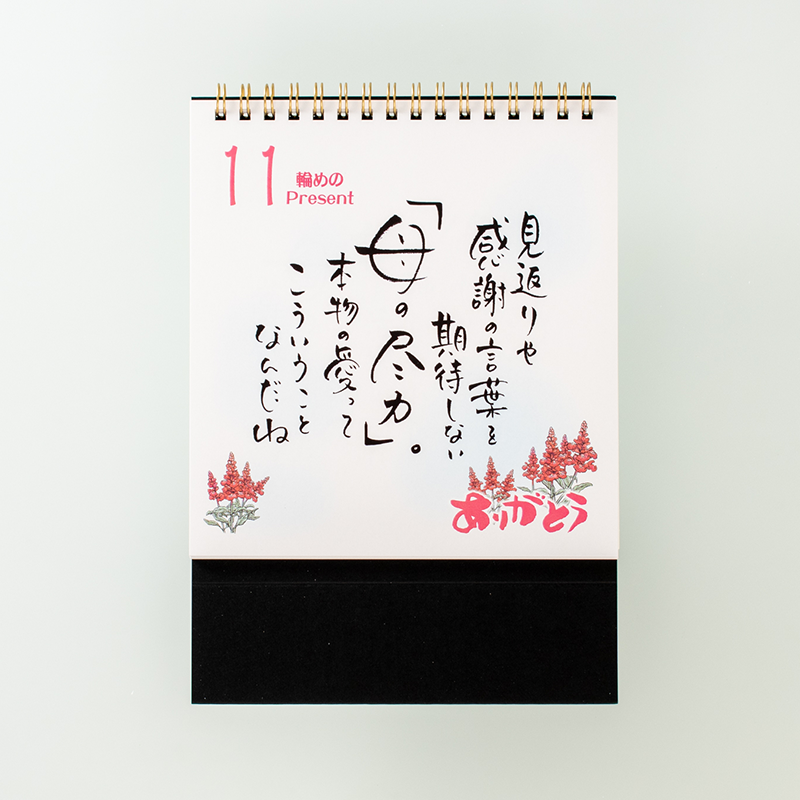 11
輪めの
Present
見返りや
感謝の言葉を
期待しない
「母の尽力」。
本物の愛って
こういうこと
なんだね
ありがとう